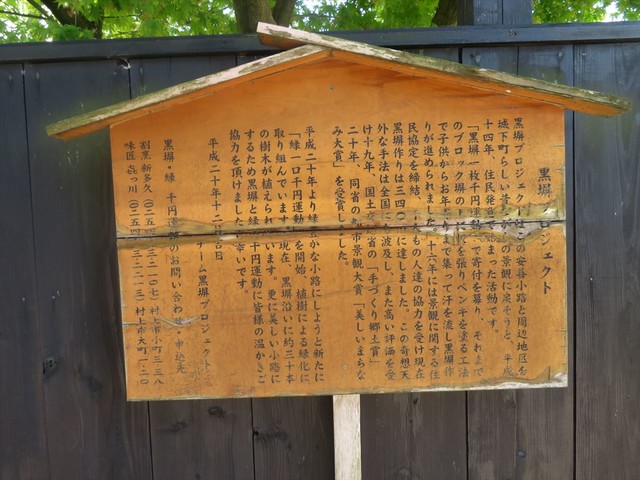 黒塀プロジェクト
黒塀プロジェクトはこの安善小路と周辺地区を
城下町らしい昔の景観に戻そうと、平成
十四年、住民発意で始まった活動です。
「黒塀一枚千円運動」で寄付を募り、それまで
のブロック塀の上に板を張りペンキを塗る工法
で子供からお年寄りまで集って汗を流し黒塀作
りが進められました。十六年には景観に関する住
民協定を締結、人達の協力を受け現在
黒塀作りは三四〇に達しました。この奇想天
外な手法は全国に波及し、また高い評価を受
け十九年、国土交通省の「手づくり郷土賞」
二十年、同省の都市景観大賞「美しいまちな
み大賞」を受賞しました。
平成二十年より緑豊かな小路にしようと新たに
「緑一口千円運動」を開始、植樹による緑化に
取り組んでいます。現在、黒塀沿いに約三十本
の樹木が植えられています。更に美しい小路に
するため黒塀と緑の千円運動に皆様の温かきご
協力を頂けましたら幸いです。
平成二十年十二月吉日
チーム黒塀プロジェクト
黒塀・緑 千円運動のお問い合わせ・申込先
割烹 新多久 (〇二五四)五三-二一〇七 村上市小町三-三八
味匠 㐂っ川 (〇二五四)五三-二二一三 村上市大町一-二〇